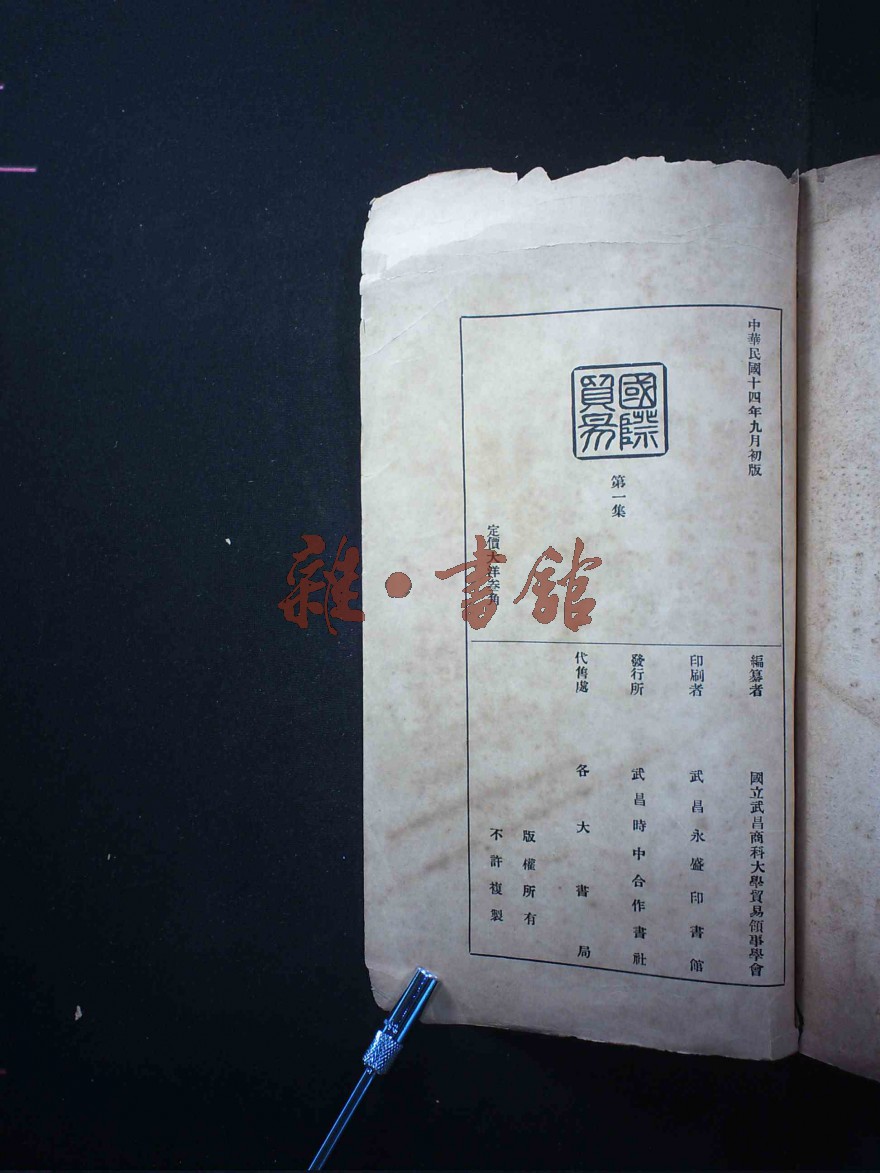 中華民國十四年九月初版
國際貿易
第一集
定價大洋叁角
編纂者 國立武昌商科大學貿易領事學會
印刷者 武昌永盛印書館
發行所 武昌時中合作書社
代售處 各大書局
版權所有
不許複製
雜·書館